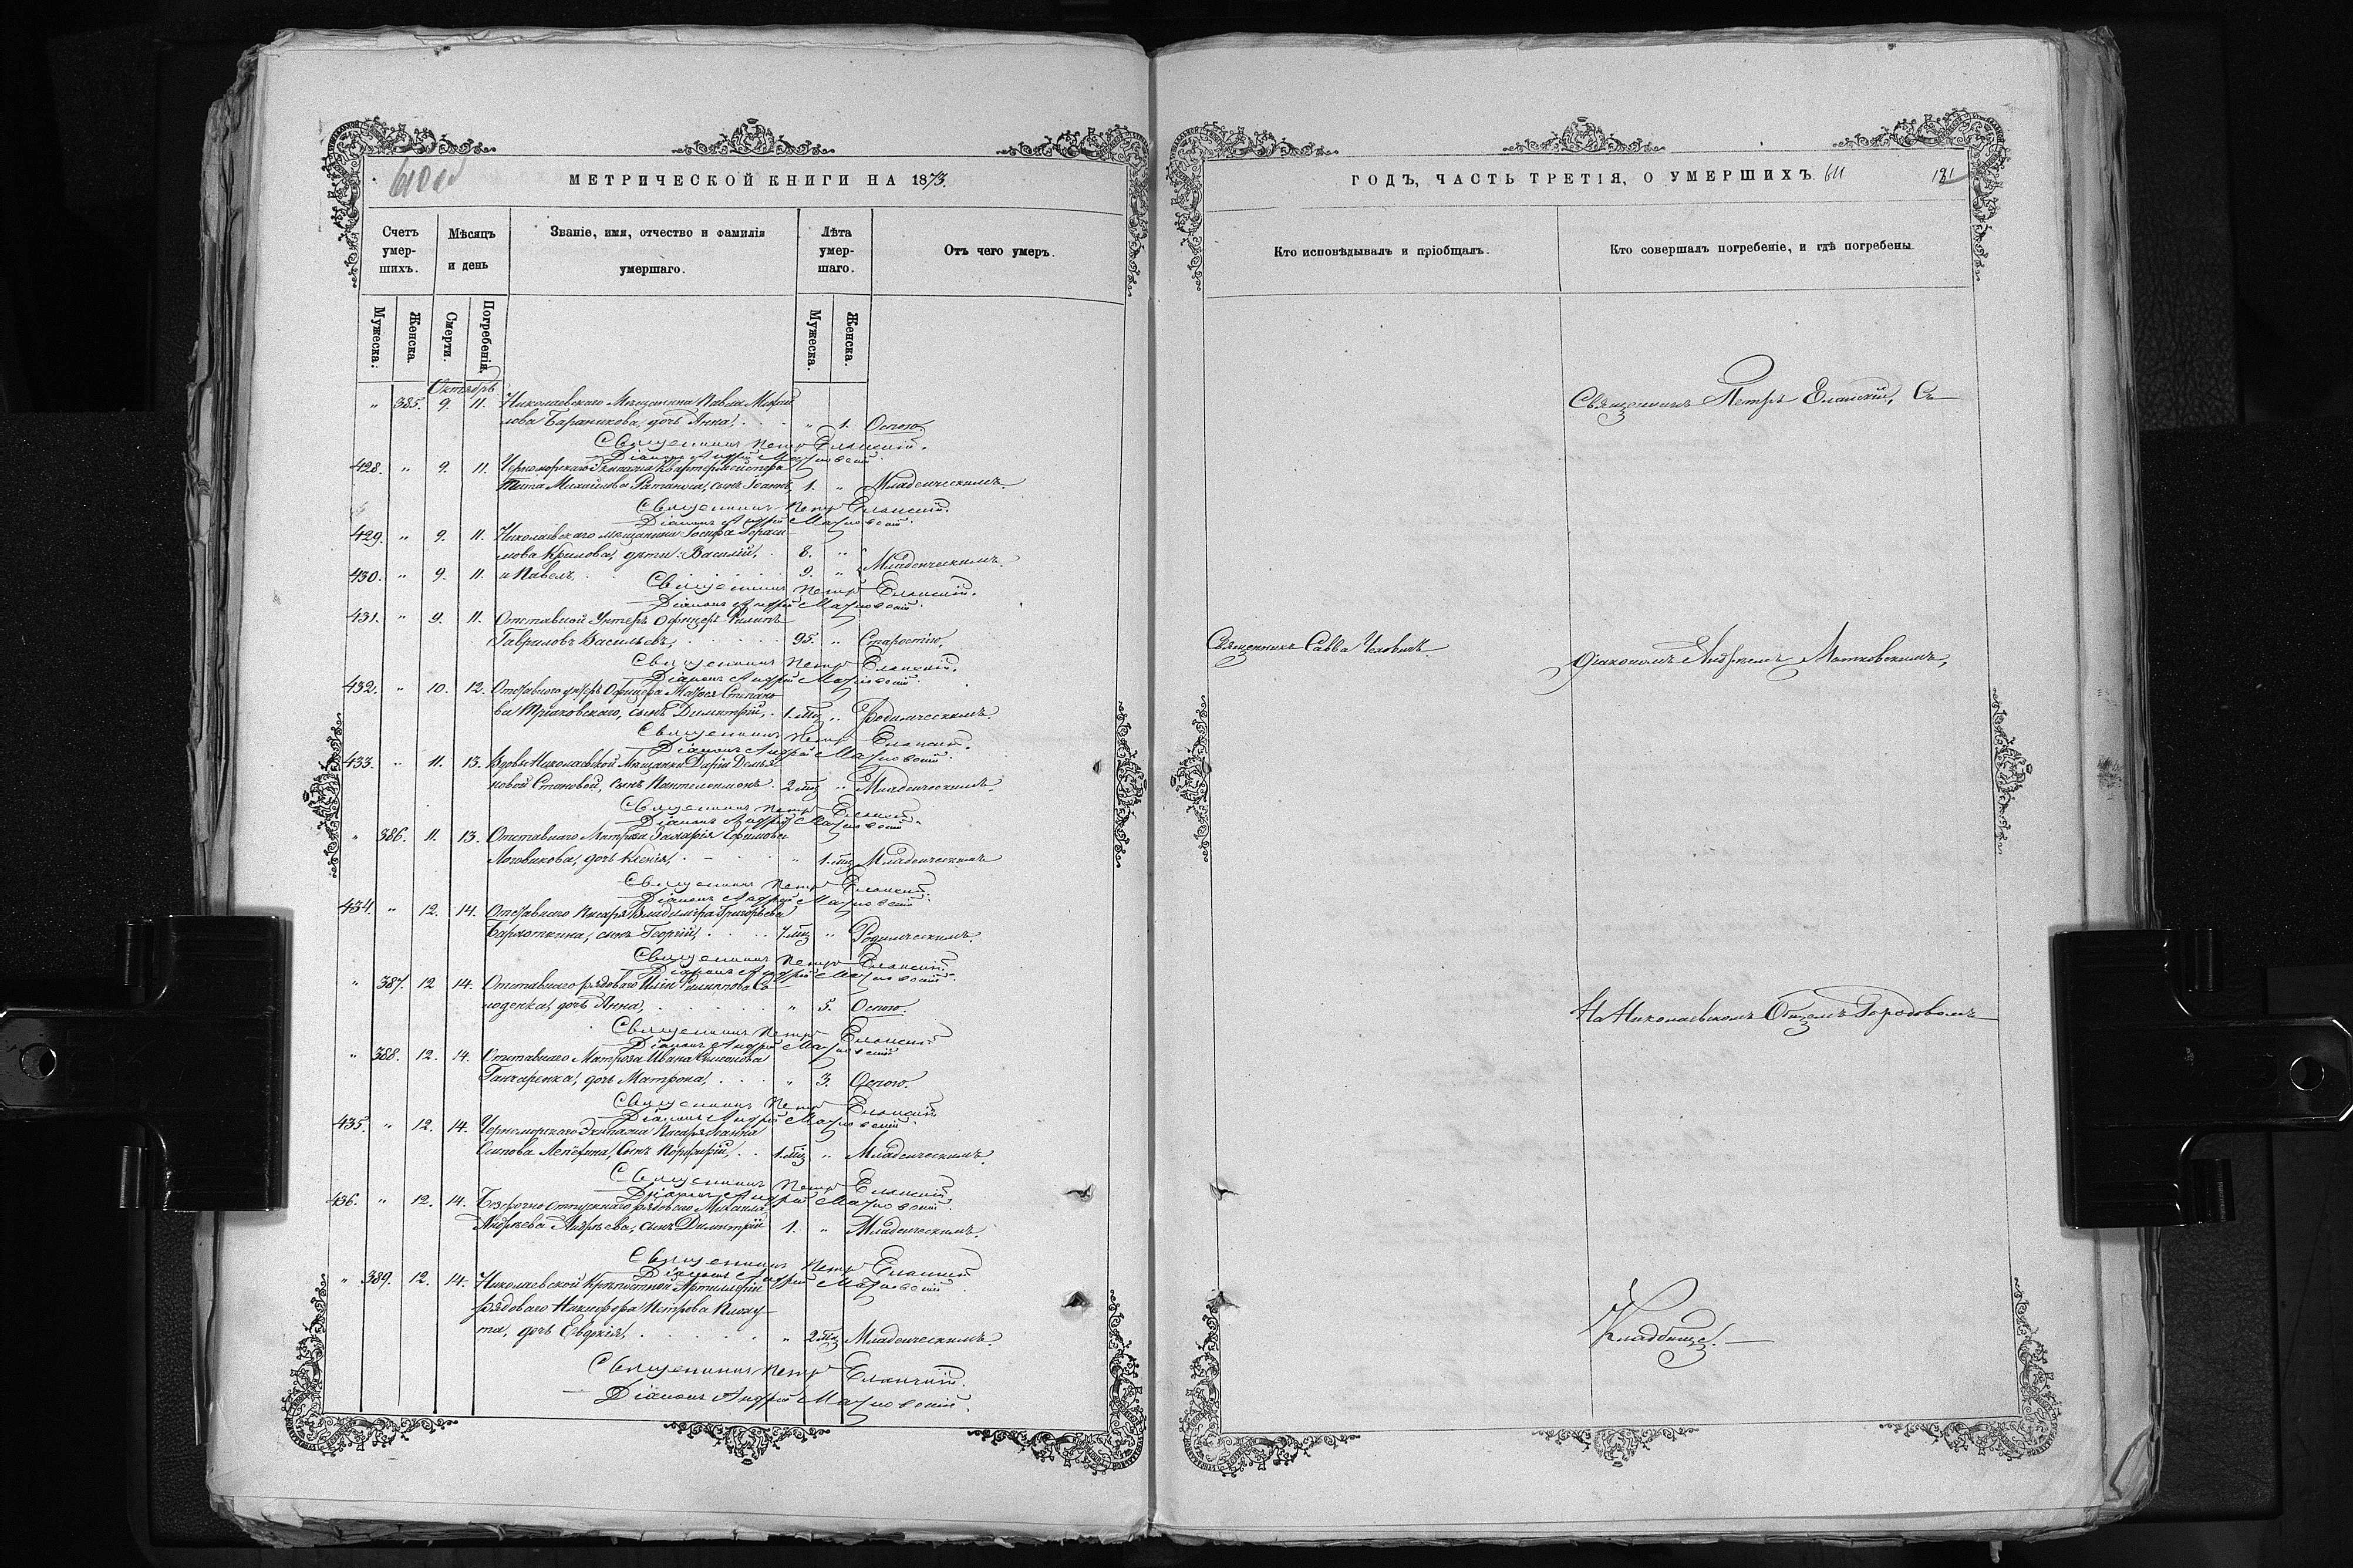 610 об
МЕТРИЧЕСКОЙ КНИГИ НА 1873.
Счетъ умер-шихъ.
Мѣсяцъ и день
Званіе, имя, отчество и фамилія умершаго.
Лѣта умер-шаго.
Отъ чего умеръ.
Мужеска.
Женска.
Смерти.
Погребенія.
Мужеска.
Женска.
Октябрь
" 385. 9. 11. Николаевского Мѣщанина Павла Михай
лова Баранникова, дочь Анна, " 1. Оспою.
Священникъ Петръ Еланскій.
Діаконъ Андрей Матковскій.
428. " 9. 11. Черноморского Экипажа Квартермейстера
Тита Михайлова Ратанова, сынъ Іоаннъ, 1. " Младенческимъ.
Священникъ Петръ Еланскій.
Діаконъ Андрей Матковскій.
429. " 9. 11. Николаевскаго мѣщанина Іосифа Гераси
мова Крилова, дѣти: Василій, 8. "
430. " 9. 11. и Павелъ 9. " Младенческимъ.
Священникъ Петръ Еланскій.
Діаконъ Андрей Матковскій.
431. " 9. 11. Отставной Унтеръ Офицеръ Филипъ
Гавриловъ Васильевъ, 95. " Старостію.
Священникъ Петръ Еланскій.
Діаконъ Андрей Матковскій.
432. " 10. 12. Отставного унтеръ Офицера Матвея Степано
ва Трояковского, сынъ Димитрій, 1. мѣс. " Родимческимъ.
Священникъ Петръ Еланскій.
Діаконъ Андрей Матковскій.
433. " 11. 13. Вдовы Николаевской Мѣщанки Даріи Демья
новой Становой, сынъ Пантелеимонъ 2 мѣс " Младенческимъ.
Священникъ Петръ Еланскій.
Діаконъ Андрей Матковскій.
" 386. 11. 13. Отставнаго Матроса Захарія Ефимова
Логвинова, дочь Ксенія, " 1. мѣс Младенческимъ
Священникъ Петръ Еланскій.
Діаконъ Андрей Матковскій.
434. " 12. 14. Отставнаго Писаря Владиміра Григорьева
Бархоткина, сынъ Георгій, 7. мѣс " Родимческимъ.
Священникъ Петръ Еланскій.
Діаконъ Андрей Матковскій.
" 387. 12 14. Отставнаго рядового Иліи Филиппова Со
лоденка, дочь Анна, " 5. Оспою.
Священникъ Петръ Еланскій
Діаконъ Андрей Матковскій
" 388. 12. 14. Отставнаго Матроса Ивана Симонова
Ганчаренка, дочь Матрона, " 3. Оспою.
Священникъ Петръ Еланскій
Діаконъ Андрей Матковскій.
435. " 12. 14. Черноморского Экипажа Писаря Іоанна
Осипова Лепехина, Сынъ Порфирій, 1. мѣс " Младенческимъ.
Священникъ Петръ Еланскій.
Діаконъ Андрей Матковскій.
436. " 12. 14. Безсрочно отпускнаго рядового Михаила
Андрѣева Андрѣева, сынъ Димитрій 1. " Младенческимъ.
Священникъ Петръ Еланскій
Діаконъ Андрей Матковскій
" 389. 12. 14. Николаевской Крѣпостной Артиллеріи
рядоваго Никифора Петрова
та, дочь Евдокія, " 2 мѣс Младенческимъ.
Священникъ Петръ Еланскій.
Діаконъ Андрей Матковскій.
ГОДЪ, ЧАСТЬ ТРЕТІЯ, О УМЕРШИХЪ. 611 121
Кто исповѣдывалъ и пріобщалъ.
Кто совершалъ погребеніе, и гдѣ погребены.
Священникъ Петръ Еланскій, Съ
Священникъ Савва Чеховичъ.
Діакономъ Андреемъ Матковскимъ,
На Николаевскомъ Общемъ Городовомъ
Кладбище.